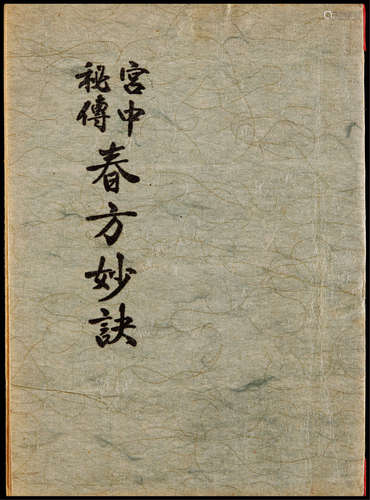 宮中
秘傳
春方妙訣